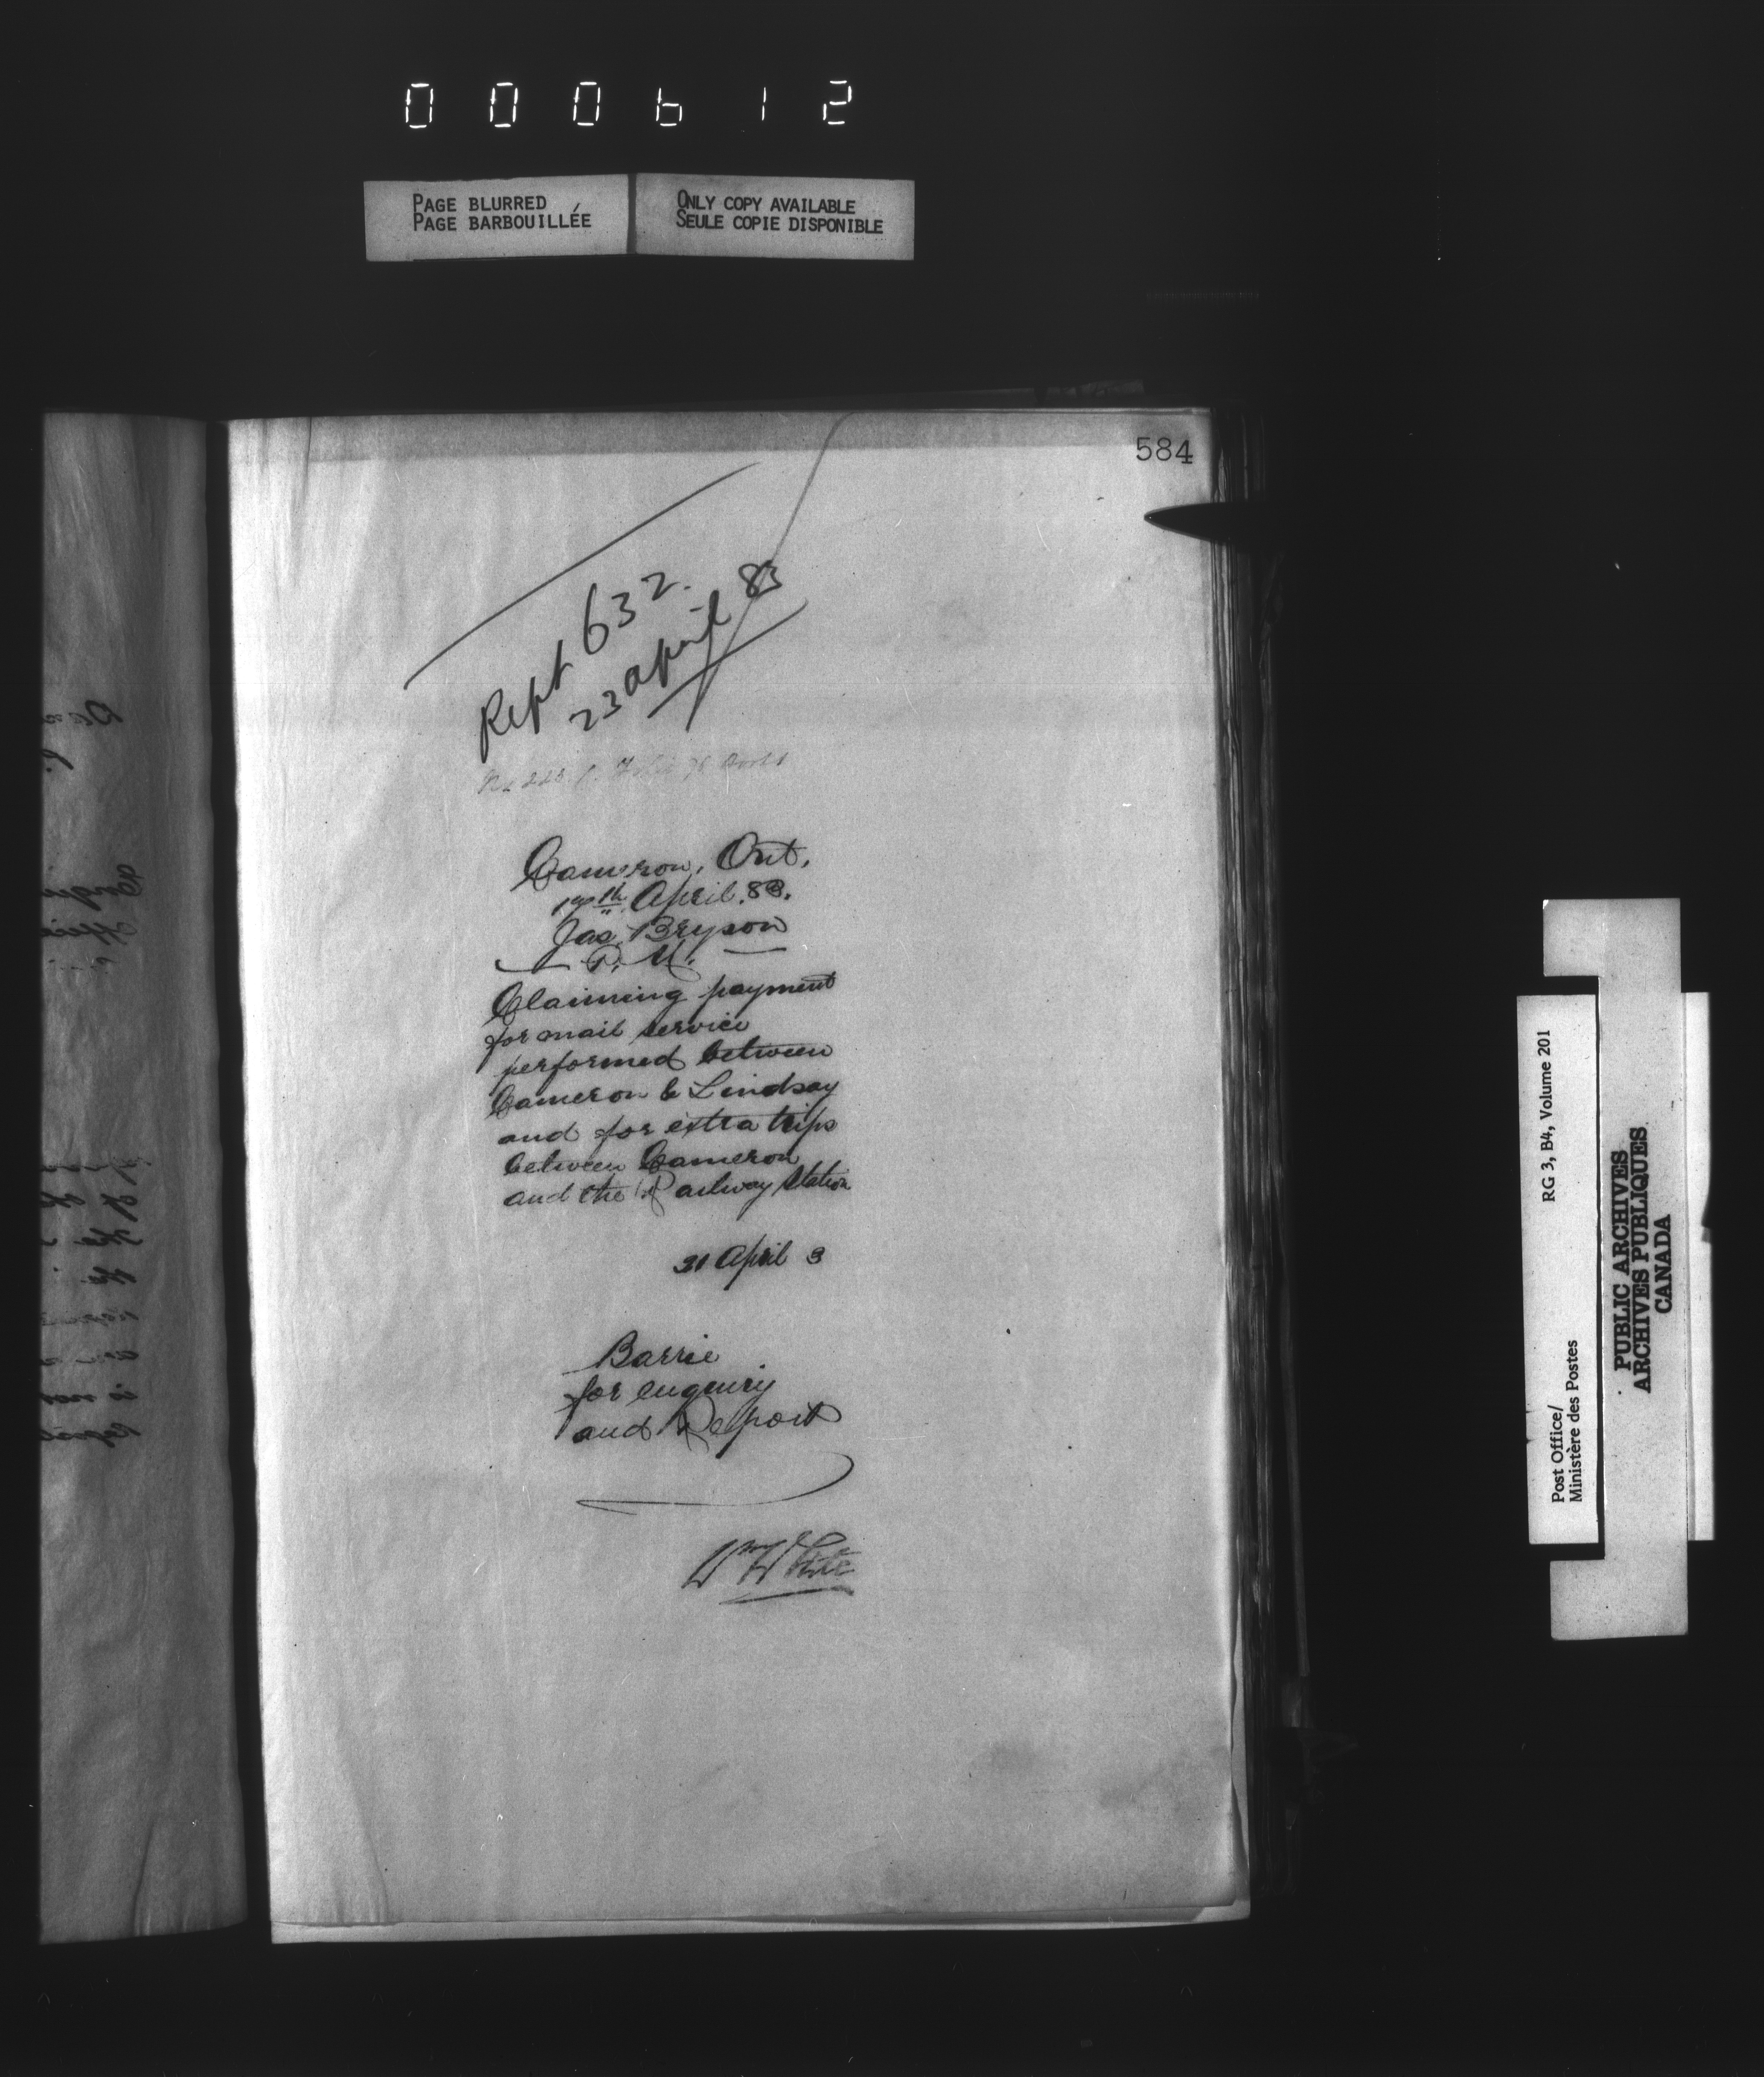 000612
PAGE BLURRED
PAGE BARBOUILLÉE
ONLY COPY AVAILABLE
SEULE COPIE DISPONIBLE
584
Rept 632.
23 April 83
Cameron, Ont,
17th April. 83.
Jas. Bryson
P. M.
Claiming payment
for mail service
performed between
Cameron & Lindsay
and for extra trips
between Cameron
and the Railway Station
21 April 3
Barrie
for enquiry
and Report
Wm White
Post Office/
Ministère des Postes
RG 3, B4, Volume 201
PUBLIC ARCHIVES
ARCHIVES PUBLIQUES
CANADA